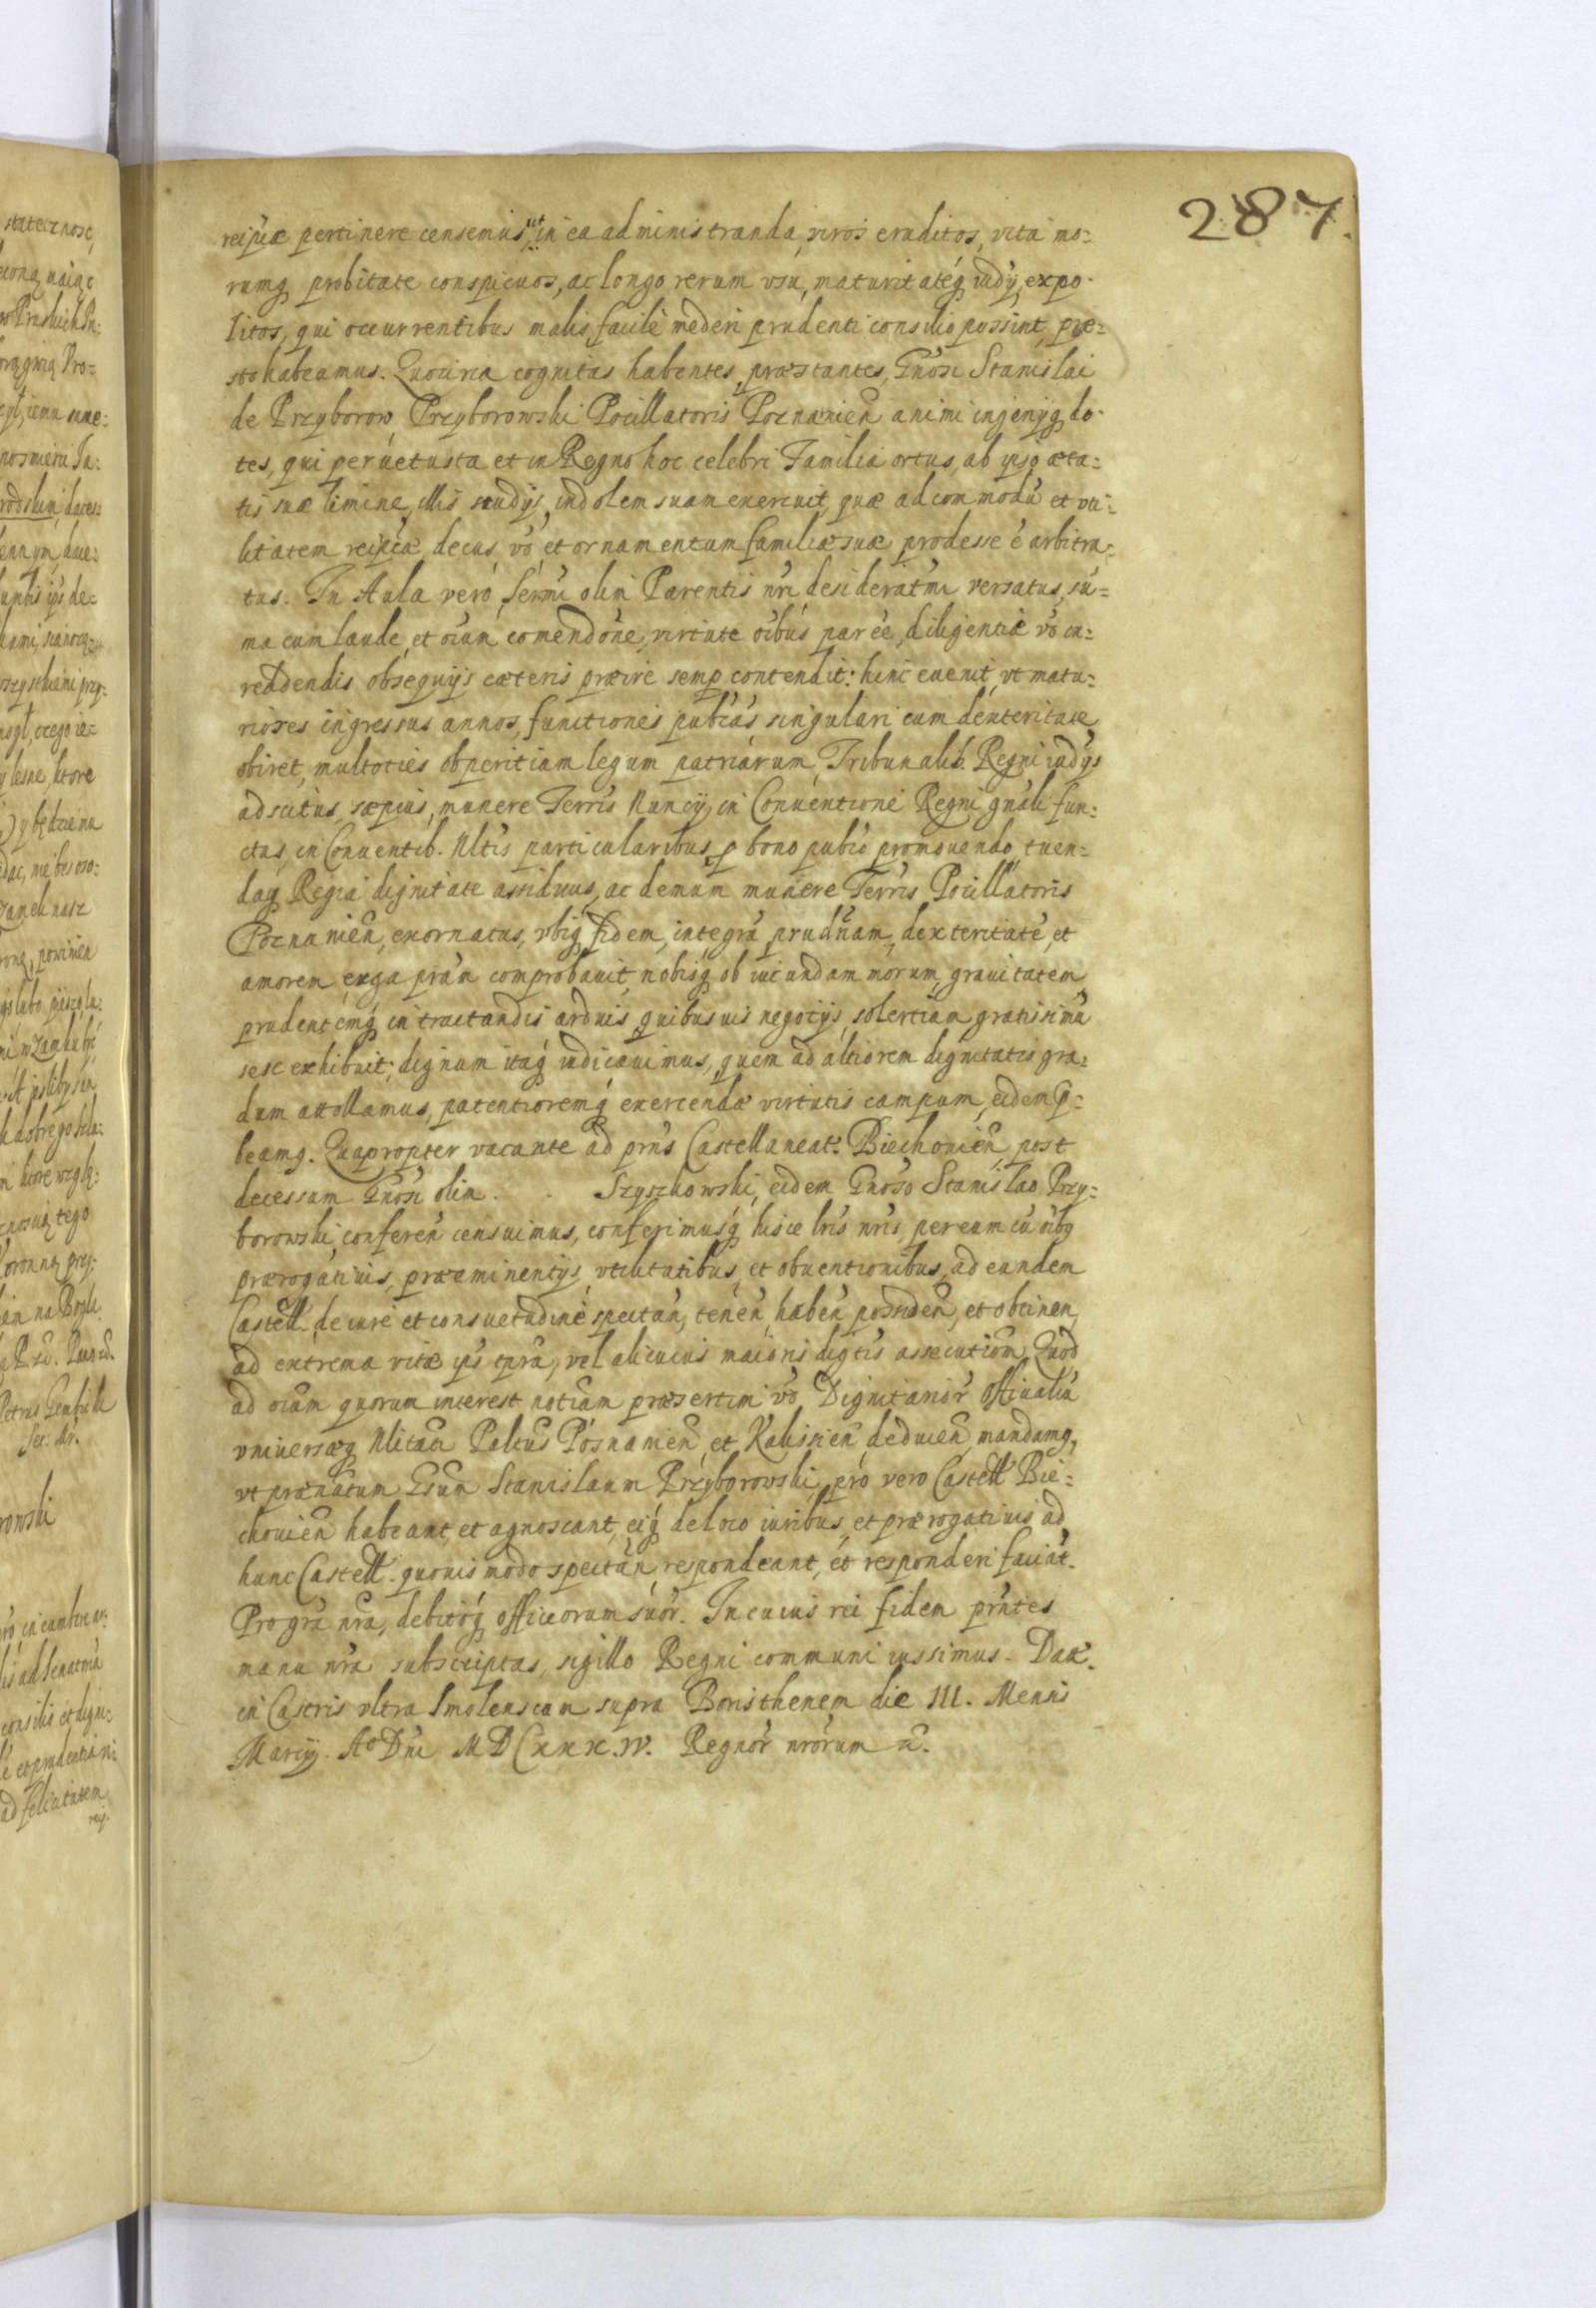 287.
reipúcæ pertinere censemus ut in ea administranda, viros eruditos, vita mo=
rumq probitate conspicuos, ac longo rerum vsu, maturitateq iudÿ, expo-
litos, qui occurrentibus malis facile mederi prudenti consilio possint, præ=
sto habeamus. Quocirca cognitas habentes, præstantes, Gnosi Stanislai
de Przyborow Przyborowski Pocillatoris Poznanien animi ingenÿq do-
tes, qui peruetusta et in Regno hoc celebri Familia ortus, ab ipso æta=
tis suæ limine, illis studÿs, indolem suam exercuit, quæ ad commodu et vti=
litatem reipca, decus vo et ornamentum familiæ suæ prodesse e arbitra=
tus. In Aula vero Sermi olim Parentis nri desideratmi versatus, su=
ma cum laude, et oium comendone, virtute oibus par ee, diligentia vo in=
reddendis obsequÿs cæteris præire semp contendit: hinc euenit, vt matu=
riores ingressus annos, functiones pubcas singulari cum dexteritate
obiret, multoties ob peritiam legum patriarum, Tribunalib. Regni iudÿs
adscitus, sæpius, munere Terris Nuncÿ, in Conuentione Regni gnali fun=
ctus, in Conuentib. Nltis particularibus, p bono pubco promouendo, tuen=
daq Regia dignitate assiduus, ac demum munere Terris Pocillatoris
Poznanien, exornatus, vbiq fidem, integra prudnam, dexteritate, et
amorem erga pram comprobauit, nobisq ob iucundam morum grauitatem
prudentemq in tractandis arduis quibusuis negotÿs, solertiam gratissimu
sese exhibuit; dignum itaq iudicauimus, quem ad altiorem dignitatis gra=
dum attollamus, patentioremq exercendæ virtutis campum, eidem p=
beamq. Quapropter vacante ad prns Castellaneat. Biechouien, post
decessum Gnosi olim . . Szyszkowski, eidem Gnoso Stanislao Przy=
borowski, conferen censuimus, conferimusq hisce lris nris, per eum cu oibq
prærogatiuis, præeminentÿs, vtilitatibus, et obuentionibus, ad eundem
Castell, de iure et consuetudine spectan, tenen, haben possiden, et obtinen,
ad extrema vitæ ips tpra, vel alicuius maioris digtis assecutiom. Quod
ad oium quorum interest notiam præsertim vo Dignitarior Officialiu
vniuersæq Nlitati Paltus Posnanien et Kalissien deducen, mandamq,
vt prænatum Gsum Stanislaum Przyborowski, pro vero Castell Bie=
chouien habeant, et agnoscant, eiq de loco iuribus, et prærogatiuis ad
hunc Castell. quouis modo spectan, respondeant, et responderi faciat.
Pro gra nra, debitoq officiorum suor. In cuius rei fidem prntes
manu nra subscriptas, sigillo Regni communi iussimus. Dat.
in Castris vltra Smolenscum supraBoristhenem die III. Mensis
Marcÿ. Ao Dni MDCXXX.IV. Regnor nrorum &.